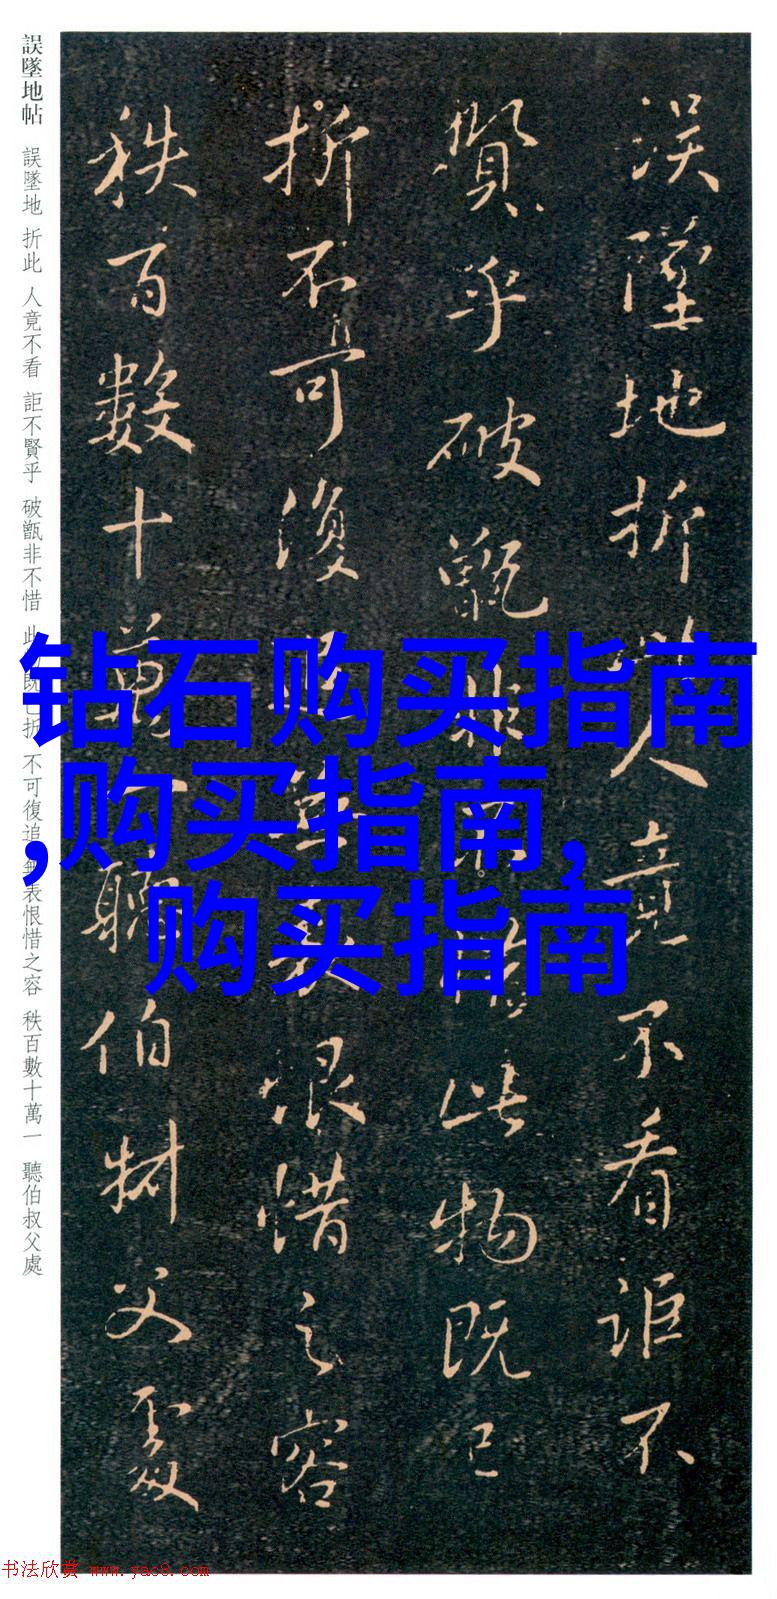 誤墜地帖 誤墜地 折此 人竟不看 詎不賢乎 破甑非不惜 此 既已折 不可復追 無表恨惜之容 秩百數十萬一 聽伯叔父處
误墜地折此人竟不看詎不
賢乎破甑非不惜此物既已
折不可復追無表恨惜之容
秩百數十萬一聽伯叔父處
钻石购买指南
,购买指南,
购买指南
书法欣赏 www.yac8.com